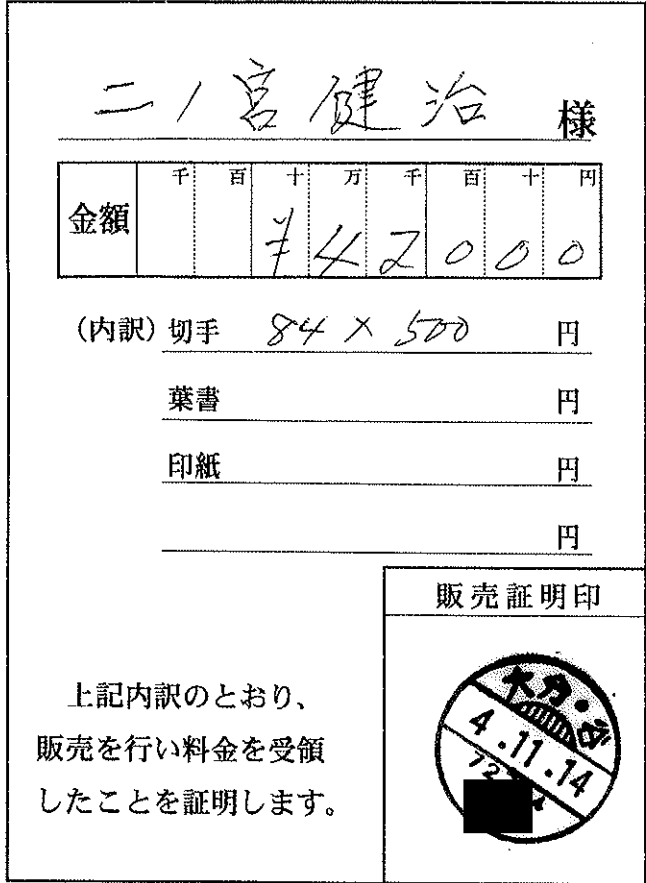 二ノ宮健治 様
金額 千 百 十 万 千 百 十 円
¥42000
(内訳) 切手 84×500 円
葉書 円
印紙 円
円
販売証明印
上記内訳のとおり、
販売を行い料金を受領
したことを証明します。
大分・谷
4.11.14